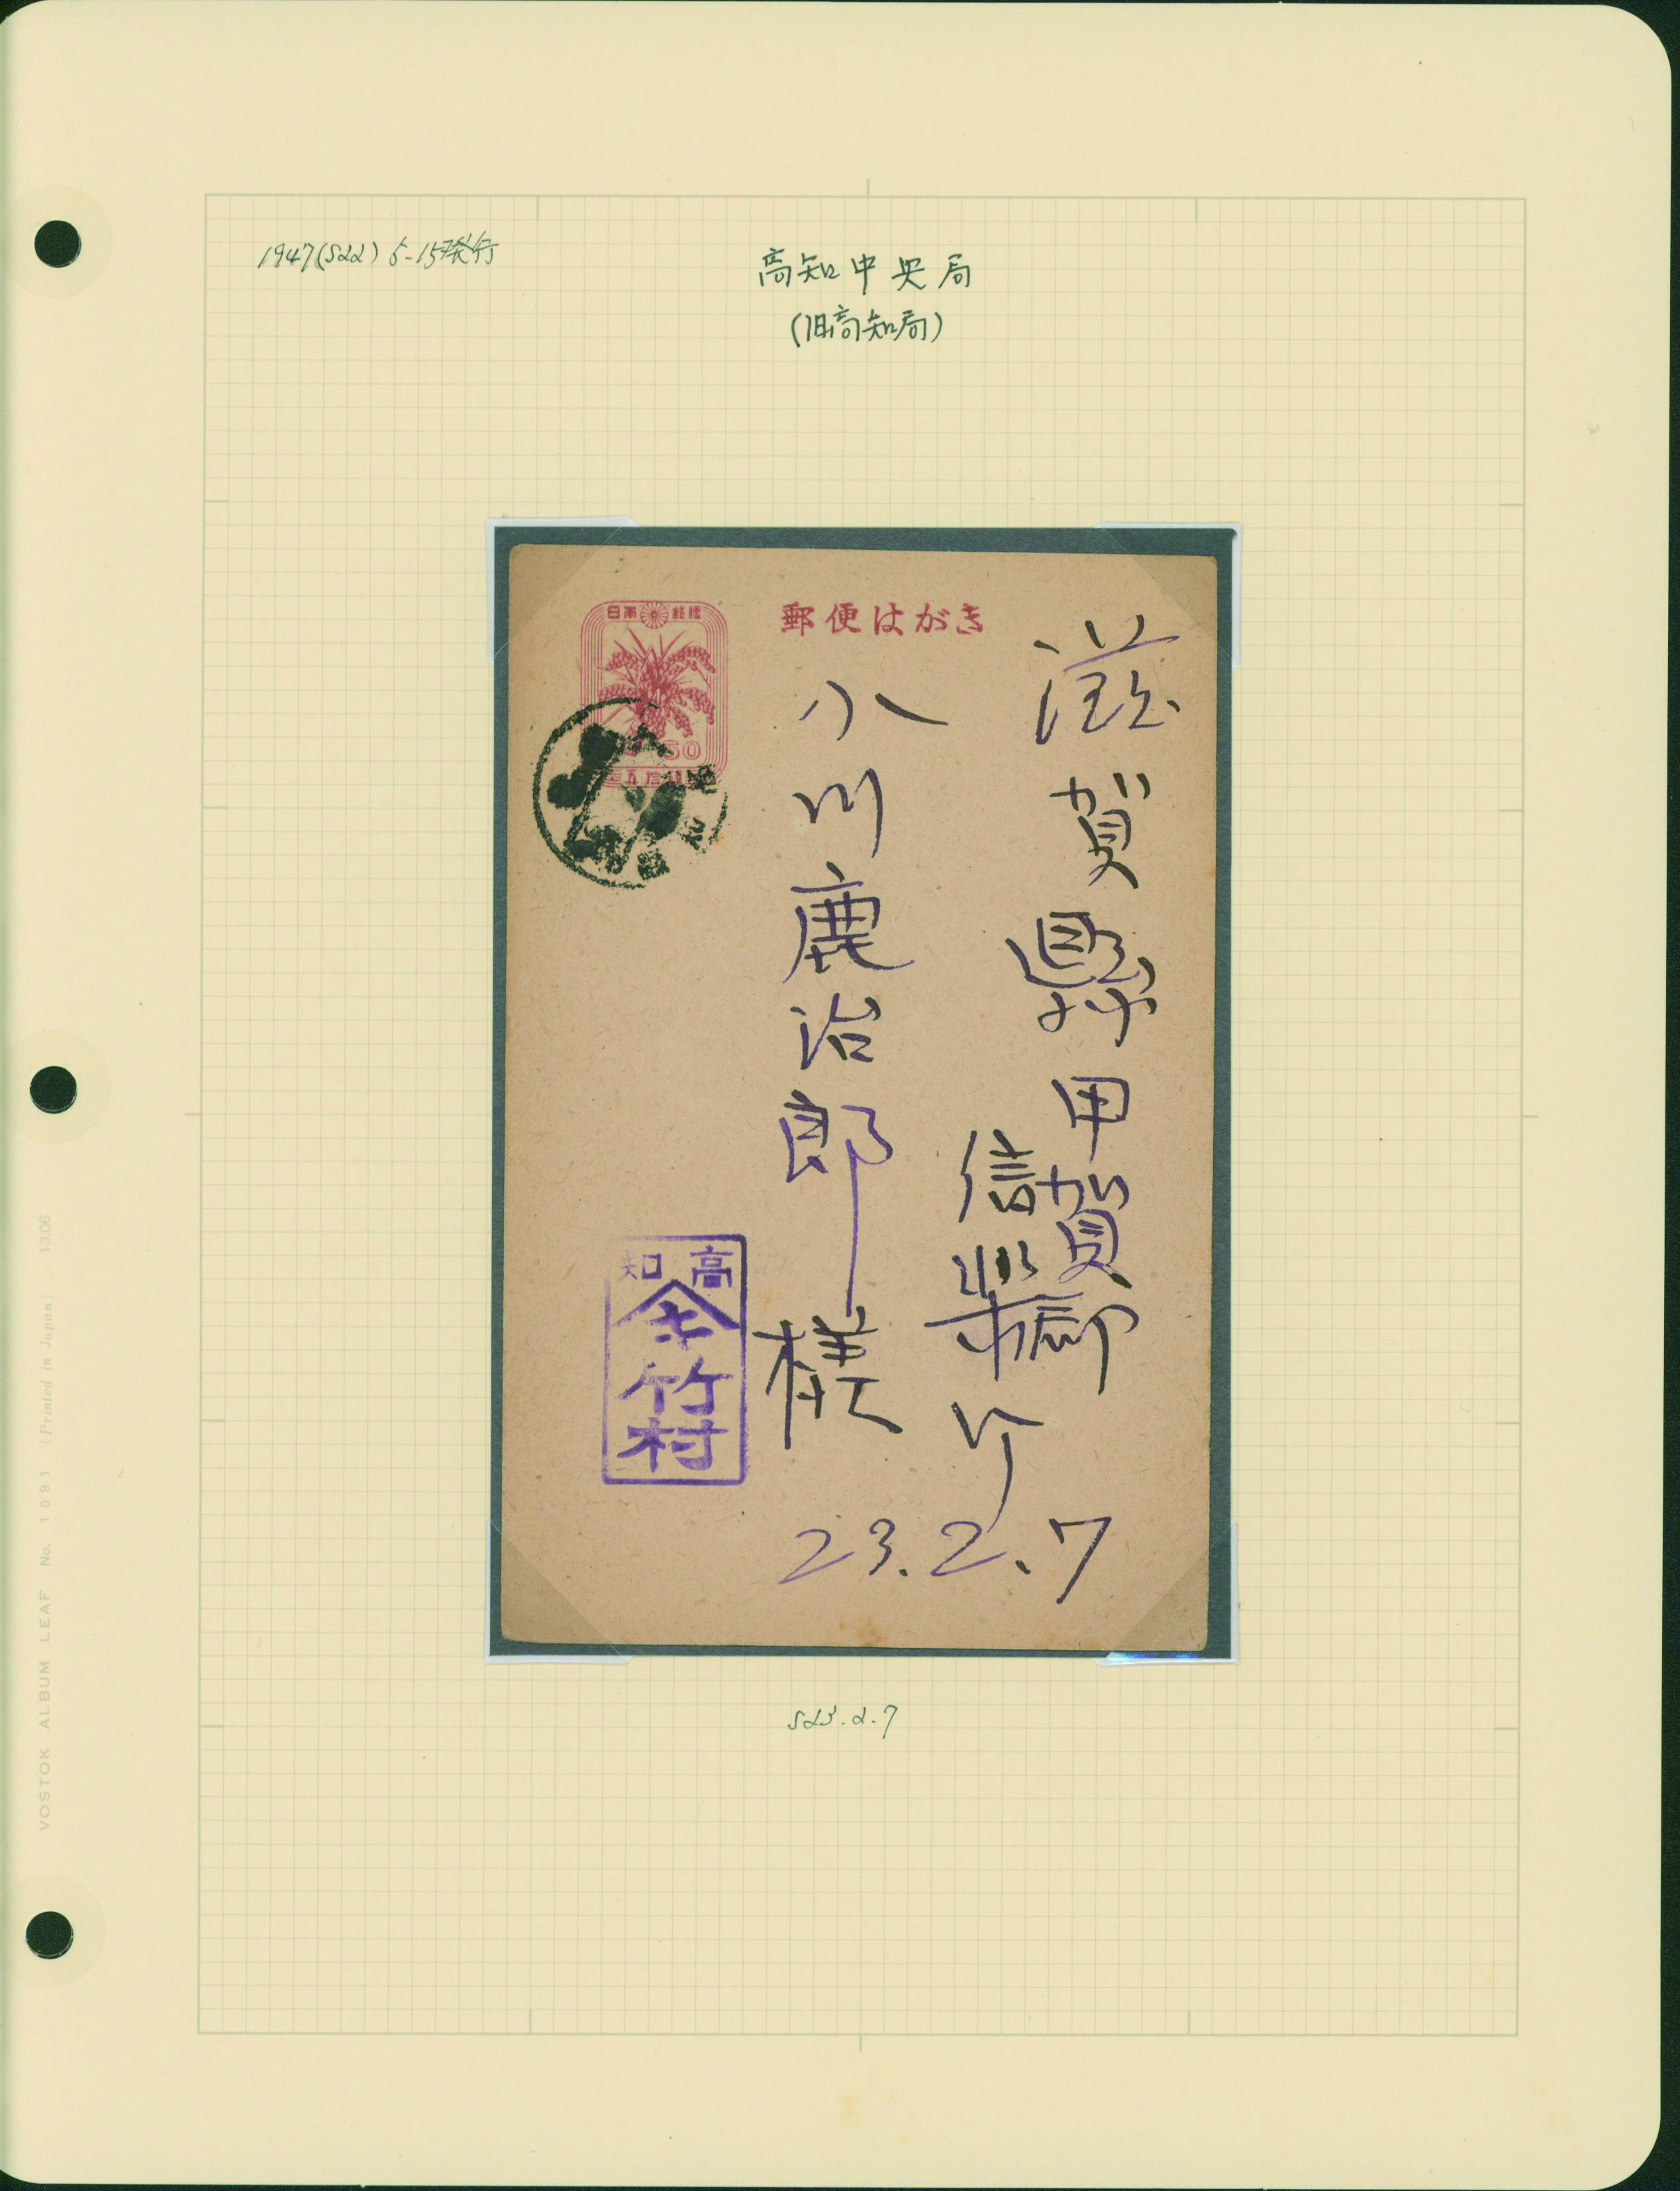 1947(S22) 5-15発行
高知中央局
(旧高知局)
日本郵便
郵便はがき
50
滋賀縣甲賀郡
信楽町
小川鹿治郎様
23.2.7
高知
キ
竹村
S23.2.7
VOSTOK ALBUM LEAF No. 1091 (Printed in Japan) 1306